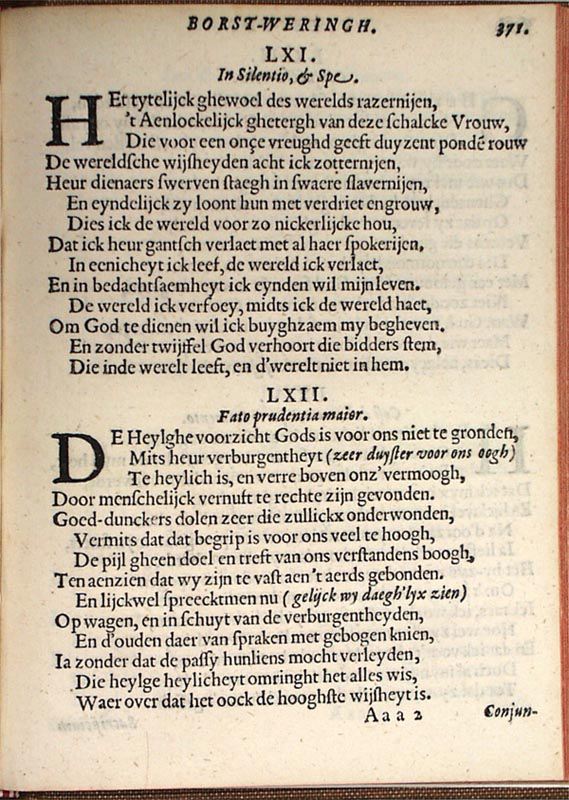 BORST-WERINGH. 371.
LXI.
In Silentio, & Spe.
HEt tytelijck ghewoel des werelds razernijen,
't Aenlockelijck ghetergh van deze schalcke Vrouw,
Die voor een onçe vreughd geeft duyzent pondē rouw
De wereldsche wijsheyden acht ick zotternijen,
Heur dienaers swerven staegh in swaere slavernijen,
En eyndelijck zy loont hun met verdriet en grouw,
Dies ick de wereld voor zo nickerlijcke hou,
Dat ick heur gantsch verlaet met al haer spokerijen,
In eenicheyt ick leef, de wereld ick verlaet,
En in bedachtsaemheyt ick eynden wil mijn leven.
De wereld ick verfoey, midts ick de wereld haet,
Om God te dienen wil ick buyghzaem my begheven.
En zonder twijffel God verhoort die bidders stem,
Die inde werelt leeft, en d'werelt niet in hem.
LXII.
Fato prudentia maior.
DE Heylghe voorzicht Gods is voor ons niet te gronden,
Mits heur verburgentheyt (zeer duyster voor ons oogh)
Te heylich is, en verre boven onz' vermoogh,
Door menschelijck vernuft te rechte zijn gevonden.
Goed-dunckers dolen zeer die zullickx onderwonden,
Vermits dat dat begrip is voor ons veel te hoogh,
De pijl gheen doel en treft van ons verstandens boogh,
Ten aenzien dat wy zijn te vast aen't aerds gebonden.
En lijckwel spreecktmen nu (gelijck wy daegh'lyx zien)
Op wagen, en in schuyt van de verburgentheyden,
En d'ouden daer van spraken met gebogen knien,
Ia zonder dat de passy hunliens mocht verleyden,
Die heylge heylicheyt omringht het alles wis,
Waer over dat het oock de hooghste wijsheyt is.
Aaa 2 Conjun-